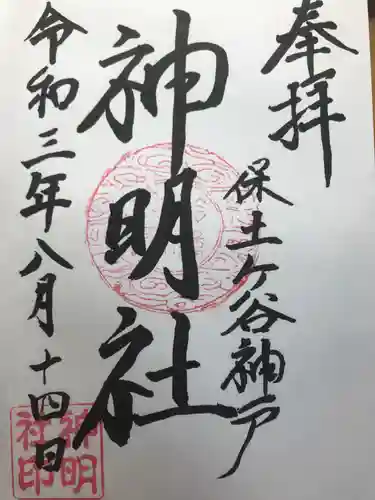 奉拝
保土ヶ谷神戸
神明社
令和三年八月十四日
神明
社印